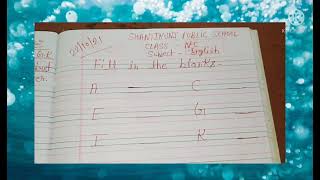 SHANTIMUNI PUBLIC SCHOOL
CLASS
Subject - English
Fill in the blanks-
A ___ C ___
E ___ G ___
I ___ K ___